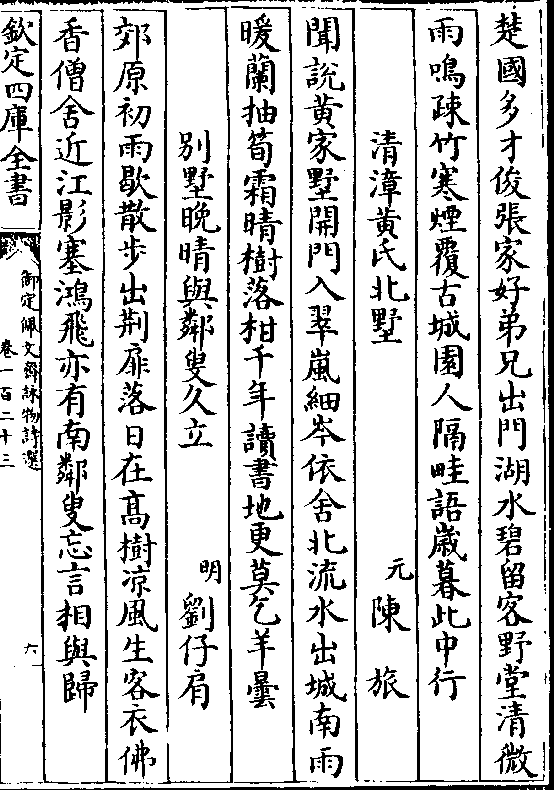 楚國多才俊張家好弟兄出門湖水碧留客野堂清微
雨鳴疎竹寒煙覆古城園人隔畦語歲暮此中行
清漳黃氏北墅 元 陳旅
聞說黃家墅開門入翠嵐細岑依舍北流水出城南雨
暖蘭抽筍霜晴樹落柑千年讀書地更莫乞羊曇
別墅晚晴與鄰叟久立 明 劉仔肩
郊原初雨歇散步出荆扉落日在高樹凉風生客衣佛
香僧舍近江影塞鴻飛亦有南鄰叟忘言相與歸
欽定四庫全書
御定佩文齋詠物詩選
卷一百二十三
六